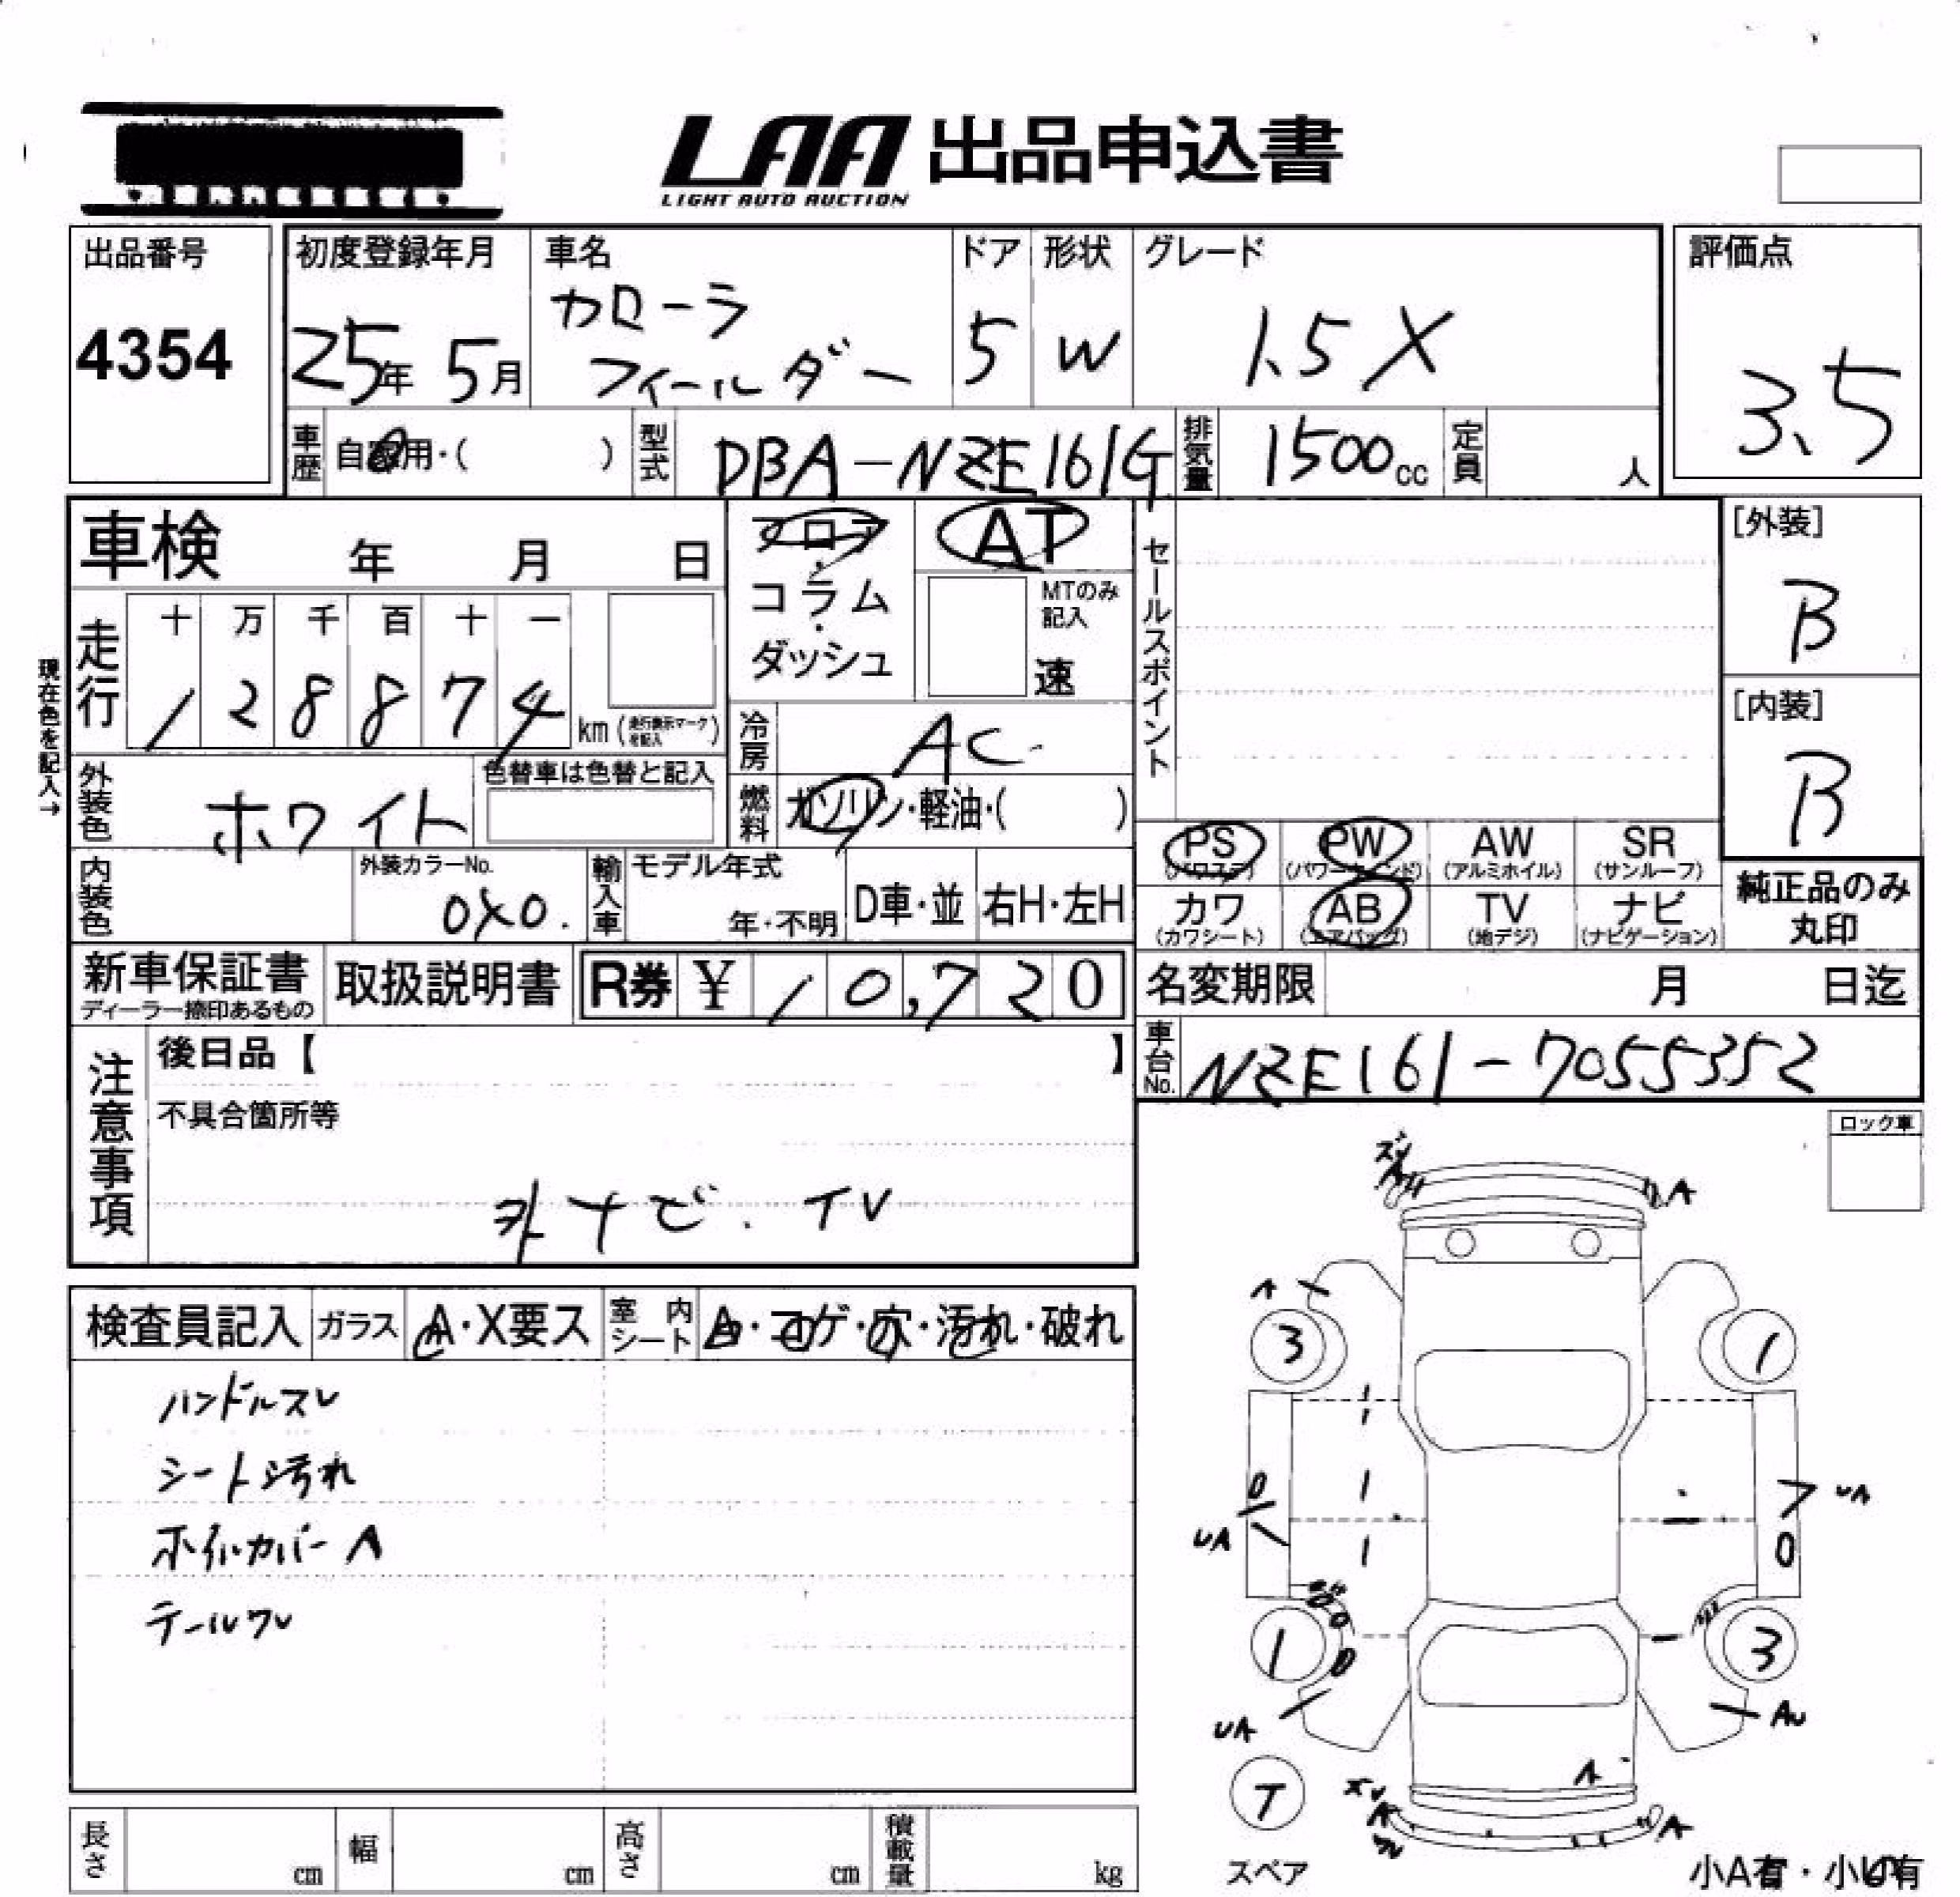 LAA 出品申込書
LIGHT AUTO AUCTION
出品番号
4354
初度登録年月
25年 5月
車名
カローラ
フィールダー
ドア
5
形状
W
グレード
1.5 X
評価点
3.5
車歴 自家用・( )
型式 DBA-NZE161G
排気量 1500cc
定員 人
車検 年 月 日
走行
十 万 千 百 十 一
1 2 8 8 7 4
km (走行表示マークを記入)
現在色を記入→
フロア
・
コラム
・
ダッシュ
AT
MTのみ
記入
速
冷房 AC
燃料 ガソリン・軽油・( )
セールスポイント
[外装]
B
[内装]
B
外装色 ホワイト
色替車は色替と記入
内装色
外装カラーNo.
040.
輸入車
モデル年式
年・不明
D車・並
右H・左H
PS PW AW SR
(パワステ) (パワーウィンド) (アルミホイル) (サンルーフ)
カワ AB TV ナビ
(カワシート) (エアバッグ) (地デジ) (ナビゲーション)
純正品のみ
丸印
新車保証書
ディーラー捺印あるもの
取扱説明書
R券 ¥ 10,720
名変期限 月 日迄
車台No. NZE161-7055352
注意事項
後日品【 】
不具合箇所等
外ナビ. TV
ロック車
検査員記入
ガラス A・X要ス
室内シート A・コゲ・穴・汚れ・破れ
ハンドルスレ
シート汚れ
ホイルカバー A
テールワレ
A
A
3
1
UA
UA
1
3
UA
AU
A
T
スペア
A
小A有・小U有
長さ cm
幅 cm
高さ cm
積載量 kg